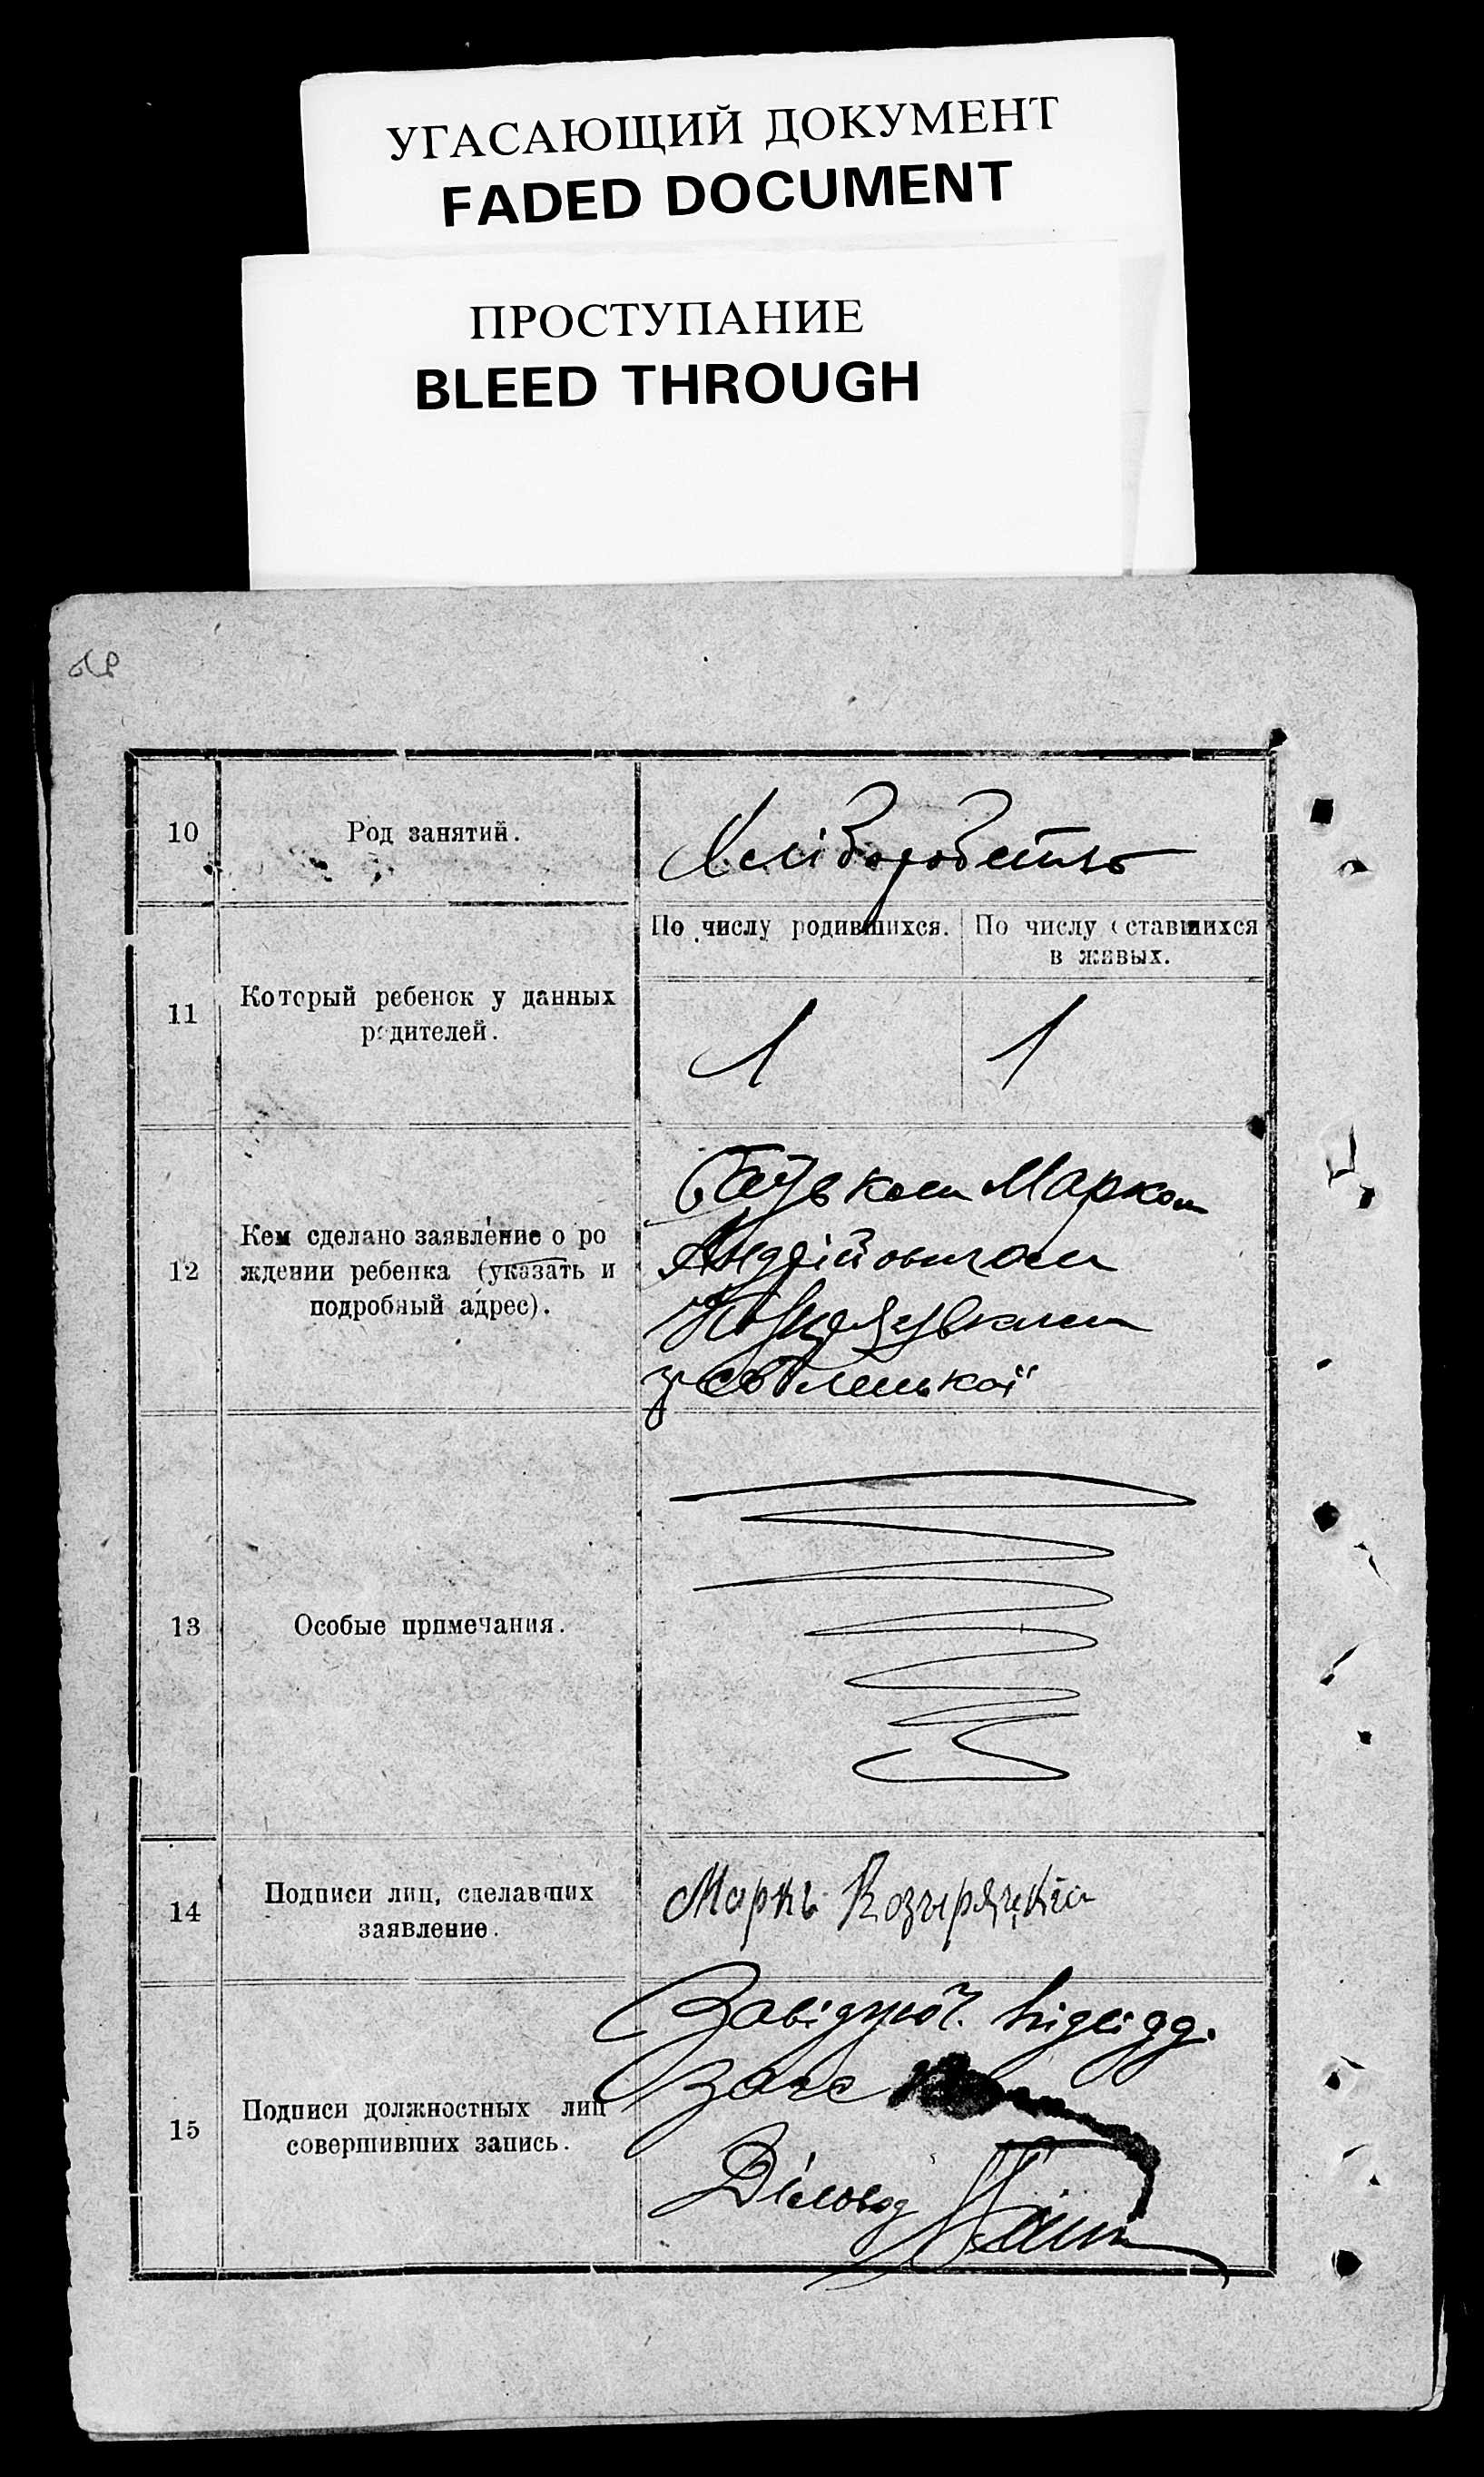 УГАСАЮЩИЙ ДОКУМЕНТ
FADED DOCUMENT
ПРОСТУПАНИЕ
BLEED THROUGH
10
Род занятий.
Хліборобство
11
Который ребенок у данных
родителей.
По числу родившихся.
По числу оставшихся
в живых.
1
1
12
Кем сделано заявление о ро
ждении ребенка (указать и
подробный адрес).
Батьком Марком
Андрійовичом
13
Особые примечания.
14
Подписи лиц, сделавших
заявление.
Маркъ Козыряцкій
15
Подписи должностных лиц
совершивших запись.
Завідуюч. підвідд.
Загс
Діловод